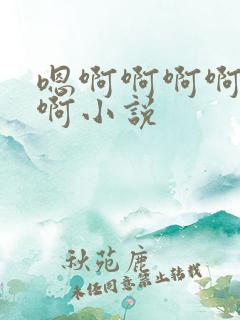 嗯啊啊啊啊
啊小说
秋苑鹿
未经同意禁止转载